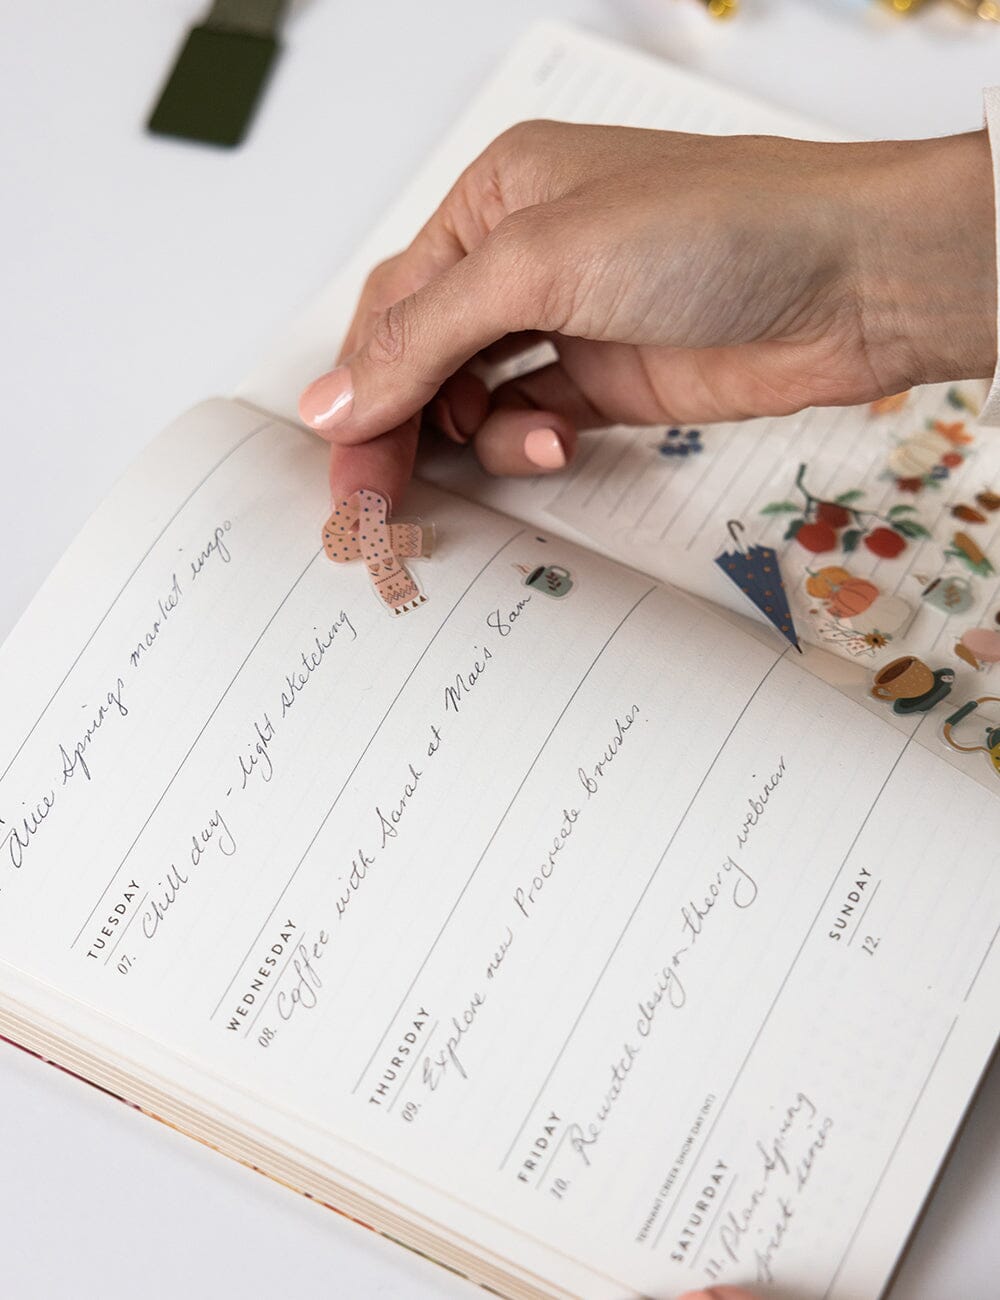 Alice Springs market inspo
TUESDAY
07. Chill day - light sketching
WEDNESDAY
08. Coffee with Sarah at Mae's 8am
THURSDAY
09. Explore new Procreate brushes.
FRIDAY
10. Rewatch design theory webinar
TENNANT CREEK SHOW DAY (NT)
SATURDAY
11. Plan Spring
print series
SUNDAY
12.